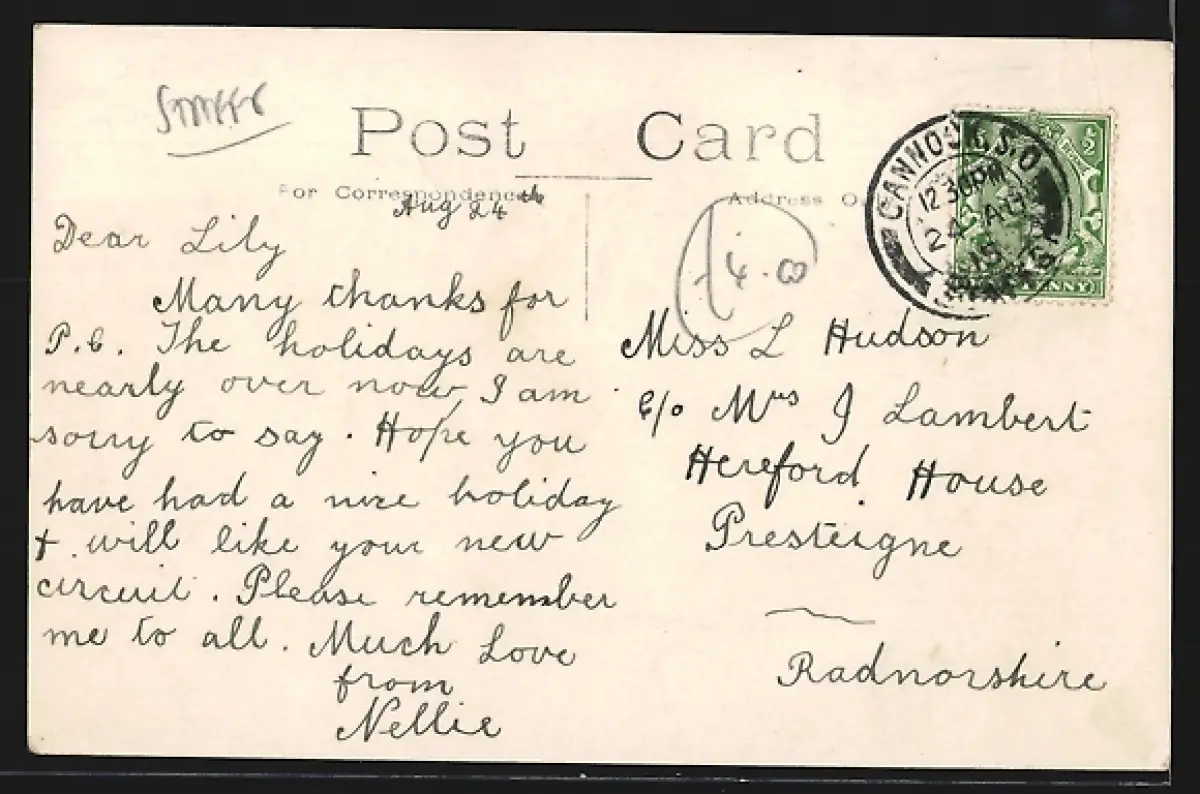 STAFFS
Post Card
For Correspondence
Address
Aug 24th
Dear Lily
Many thanks for
P.C. The holidays are
nearly over now, I am
sorry to say. Hope you
have had a nice holiday
+ will like your new
circuit. Please remember
me to all. Much Love
from
Nellie
CANNOCK S.O
12 30PM
24 AU
15
½
PENNY
4.00
Miss L Hudson
c/o Mrs J Lambert
Hereford House
Presteigne
Radnorshire